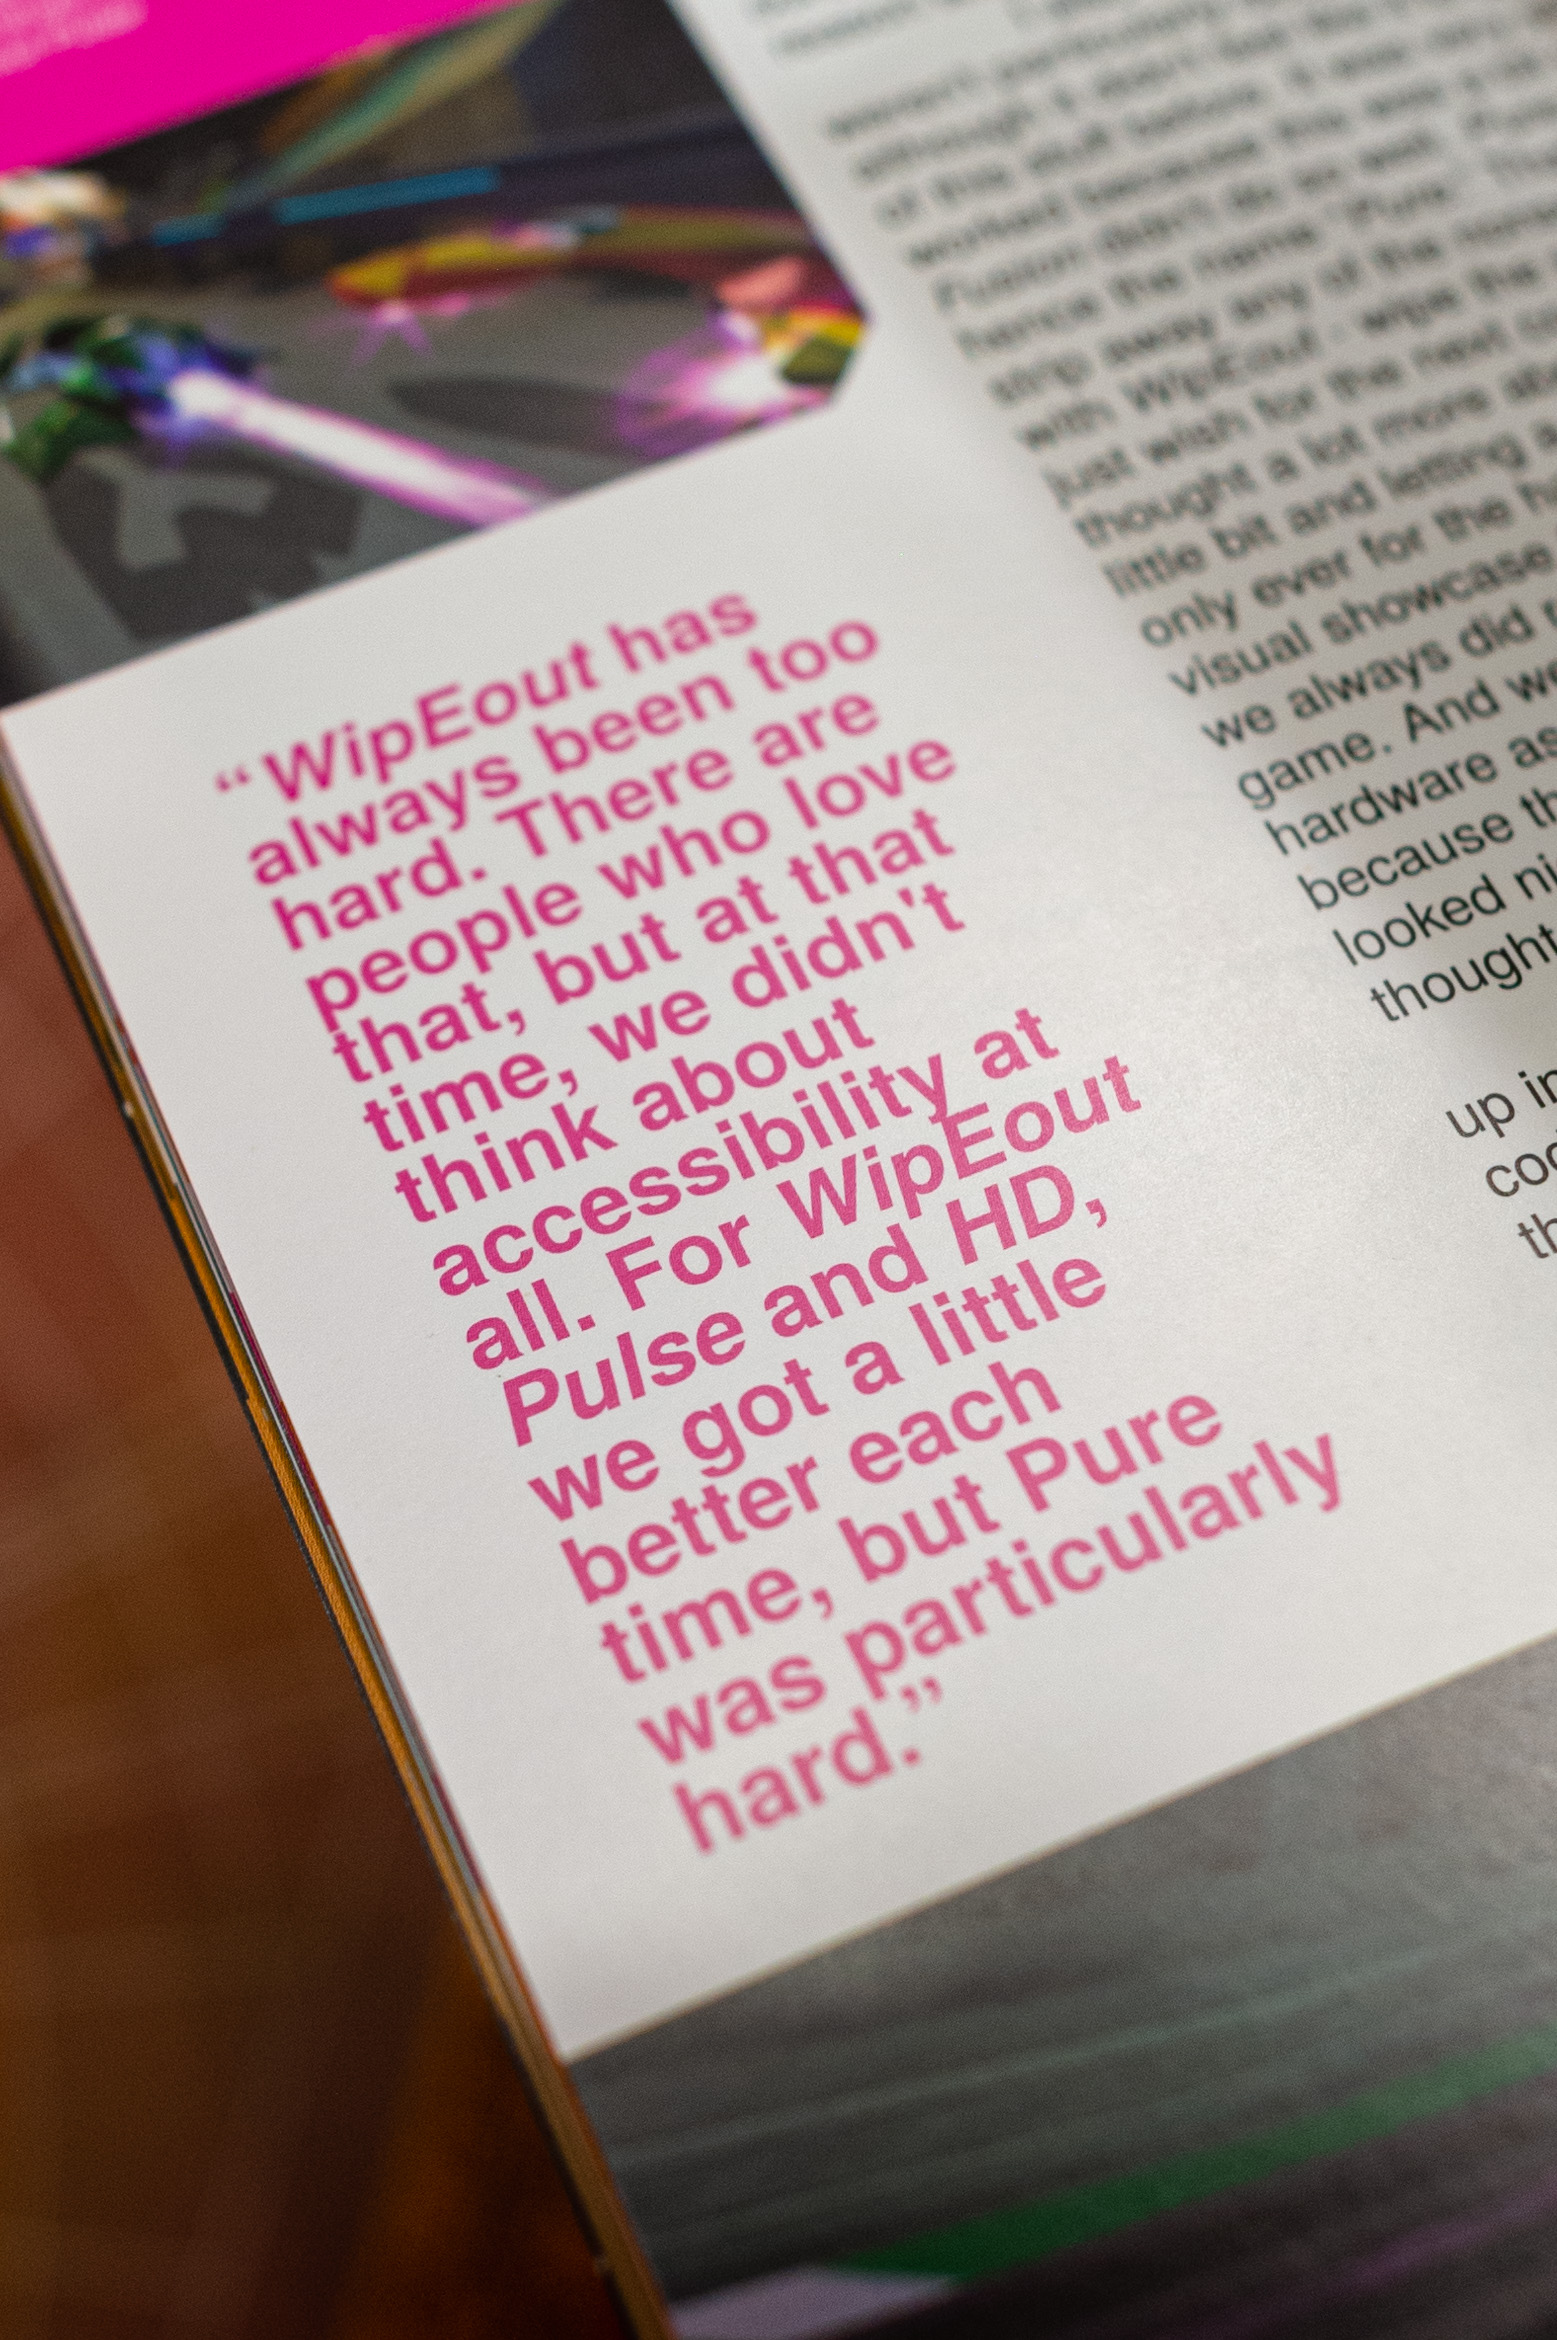 “WipEout has
always been too
hard. There are
people who love
that, but at that
time, we didn't
think about
accessibility at
all. For WipEout
Pulse and HD,
we got a little
better each
time, but Pure
was particularly
hard.”
weren't particularly
although I didn't
of this stuff before. It was very
worked because this was a lot
Fusion didn't do so well.
hence the name "Pure".
strip away any of the
with WipEout - wipe the
just wish for the next
thought a lot more
little bit and letting
only ever for the
visual showcase,
we always did
game. And we
hardware as
because
looked
thought
up